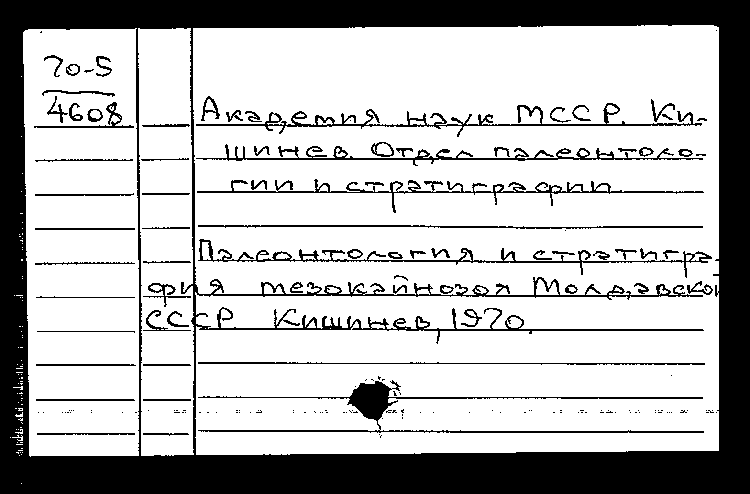 70-5
4608
Академия наук МССР. Ки-
шинев. Отдел палеонтоло-
гии и стратиграфии
Палеонтология и стратигра-
фия мезокайнозоя Молдавской
СССР Кишинев, 1970.